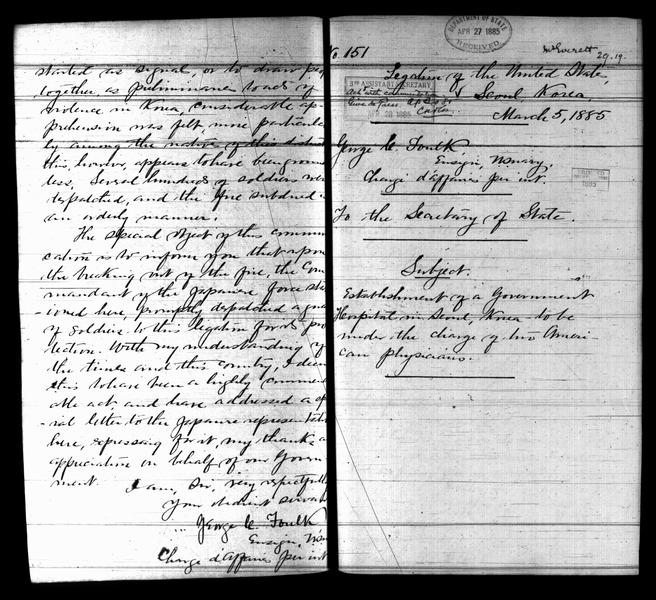 started as signal, or to draw
together as preliminaries to acts of
violence in Korea, considerable ap-
prehension was felt, more particular-
ly among the natives of this district
this, however, appears to have been ground
less. Several hundreds of soldiers were
despatched, and the fire subdued in
an orderly manner.
The special object of this commun
ication is to inform you that upon
the breaking out of the fire, the Com
mandant of the Japanese force sta
-ioned here, promptly despatched a
of soldiers to this legation for its pro
tection. With my understanding of
the times and this country, I deem
this to have been a highly commend
able act and have addressed a
letter to the Japanese representat
here, expressing for it, my thanks a
appreciation on behalf of our Govern
ment.
I am, Sir, very respectfully
Your obedient servant
George C. Foulk
Ensign, U.S.N
Charge d'Affaires per int
No. 151
DEPARTMENT OF STATE
APR 27 1885
RECEIVED
McEverett
29.19.
Legation of the United States,
Seoul, Korea,
March 5, 1885
3RD ASSISTANT SECRETARY
APR 28 1885
George C. Foulk
Ensign, U.S. Navy,
Charge d'Affaires per int.
1885
To the Secretary of State.
Subject.
Establishment of a Government
Hospital in Seoul, Korea - to be
under the charge of two Ameri-
can physicians.